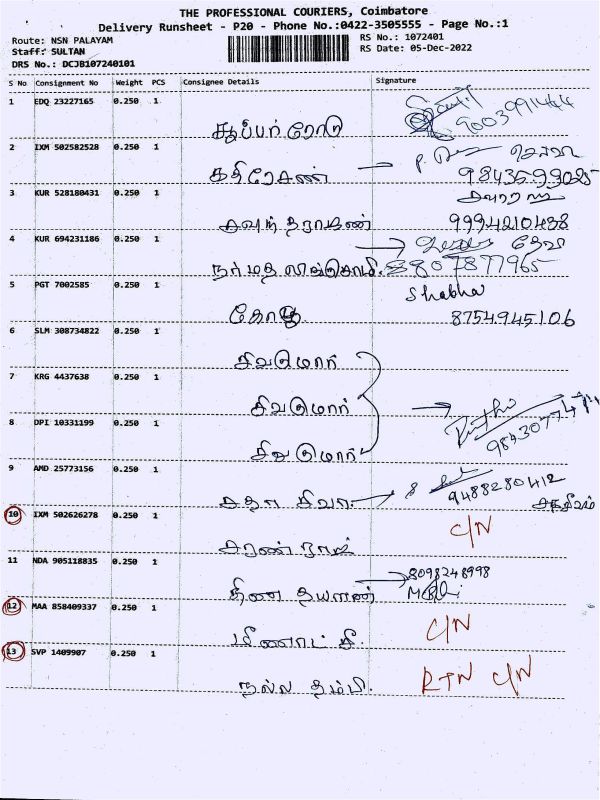 THE PROFESSIONAL COURIERS, Coimbatore
Delivery Runsheet - P20 - Phone No.:0422-3505555 - Page No.:1
Route: NSN PALAYAM
RS No.: 1072401
Staff: SULTAN
RS Date: 05-Dec-2022
DRS No.: DCJB107240101
S No Consignment No Weight PCS Consignee Details Signature
1 EDQ 23227165 0.250 1
சூப்பர் ரோடு 9003991444
2 IXM 502582528 0.250 1
கதிரேசன் → 9843599025
3 KUR 528180431 0.250 1
சவுந்தரராஜன் 9994210488
4 KUR 694231186 0.250 1
→ தேவி
8807877965
5 PGT 7002585 0.250 1
Shabha
கோபு 8754945106
6 SLM 308734822 0.250 1
சிவகுமார்
7 KRG 4437638 0.250 1
சிவகுமார் →
8 DPI 10331199 0.250 1
சிவகுமார்
9 AMD 25773156 0.250 1
சதா சிவா. → 9488280412
10 IXM 502626278 0.250 1
C/N
சரண்ராஜ்
11 NDA 905118835 0.250 1
→ 8098248998
தீன தயாளன்
12 MAA 858409337 0.250 1
C/N
மீனாட்சி.
13 SVP 1409907 0.250 1
நல்ல தம்பி. RTN C/N